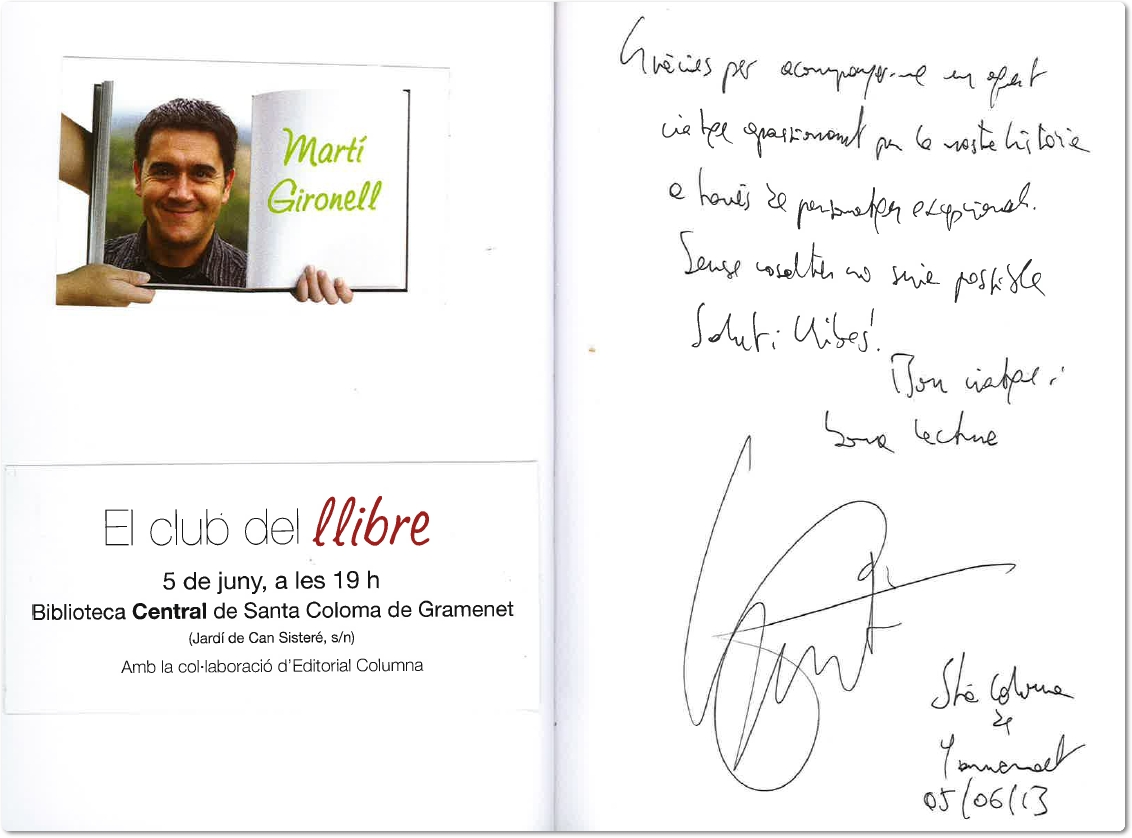 Martí
Gironell
El club del llibre
5 de juny, a les 19 h
Biblioteca Central de Santa Coloma de Gramenet
(Jardí de Can Sisteré, s/n)
Amb la col·laboració d'Editorial Columna
Gràcies per acompanyar-me en aquest
viatge apassionant per la nostra història
a través de personatges excepcionals.
Sense vosaltres no seria possible
Salut i llibres!
Bon viatge i
bona lectura
Martí
Sta Coloma
de
Gramenet
05/06/13